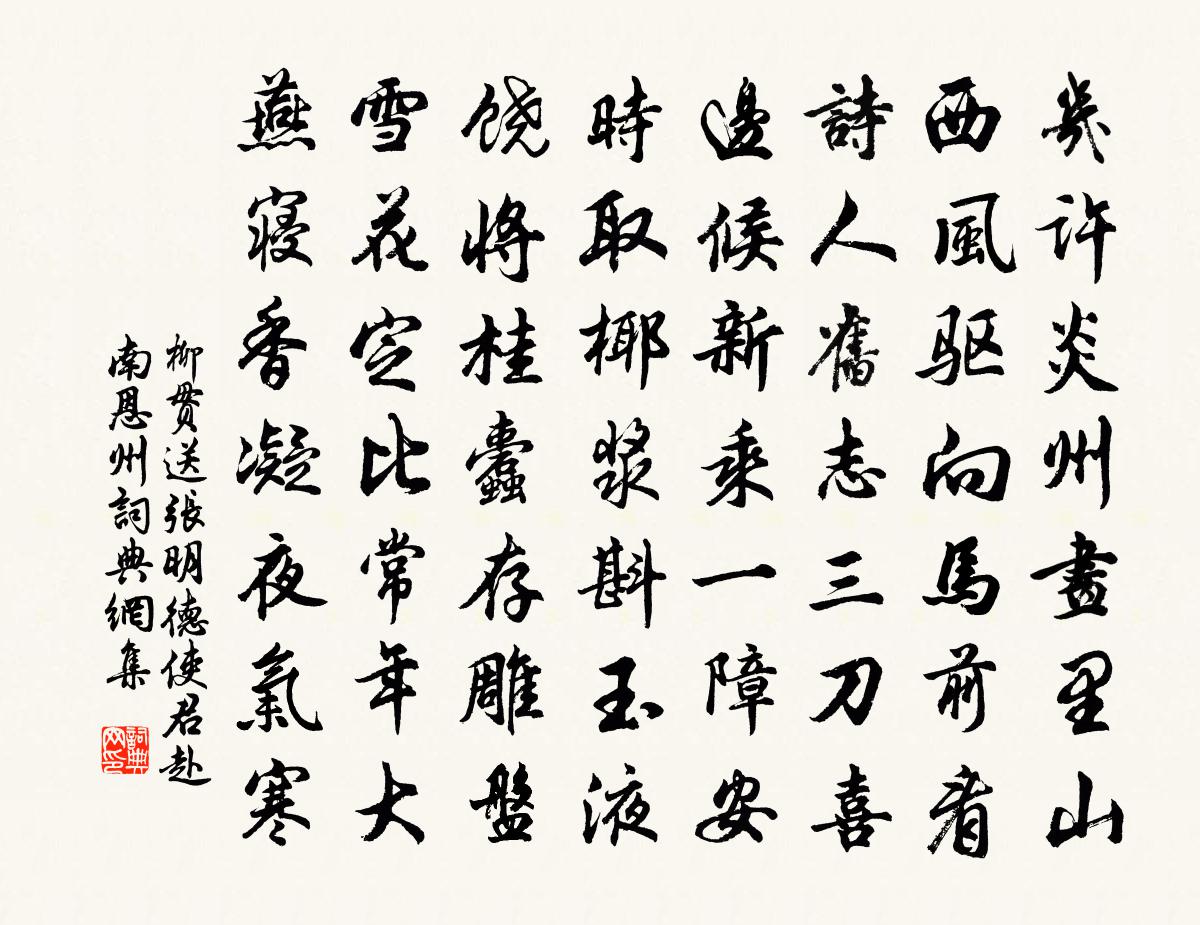 幾许炎州畫里山
西風驱向馬前看
詩人舊志三刀喜
邊候新乘一障安
時取椰漿斟玉液
饶將桂蠹存雕盤
雪花定比常年大
燕寢香凝夜氣寒
柳贯送張明德使君赴
南恩州詞典網集
詞典网印